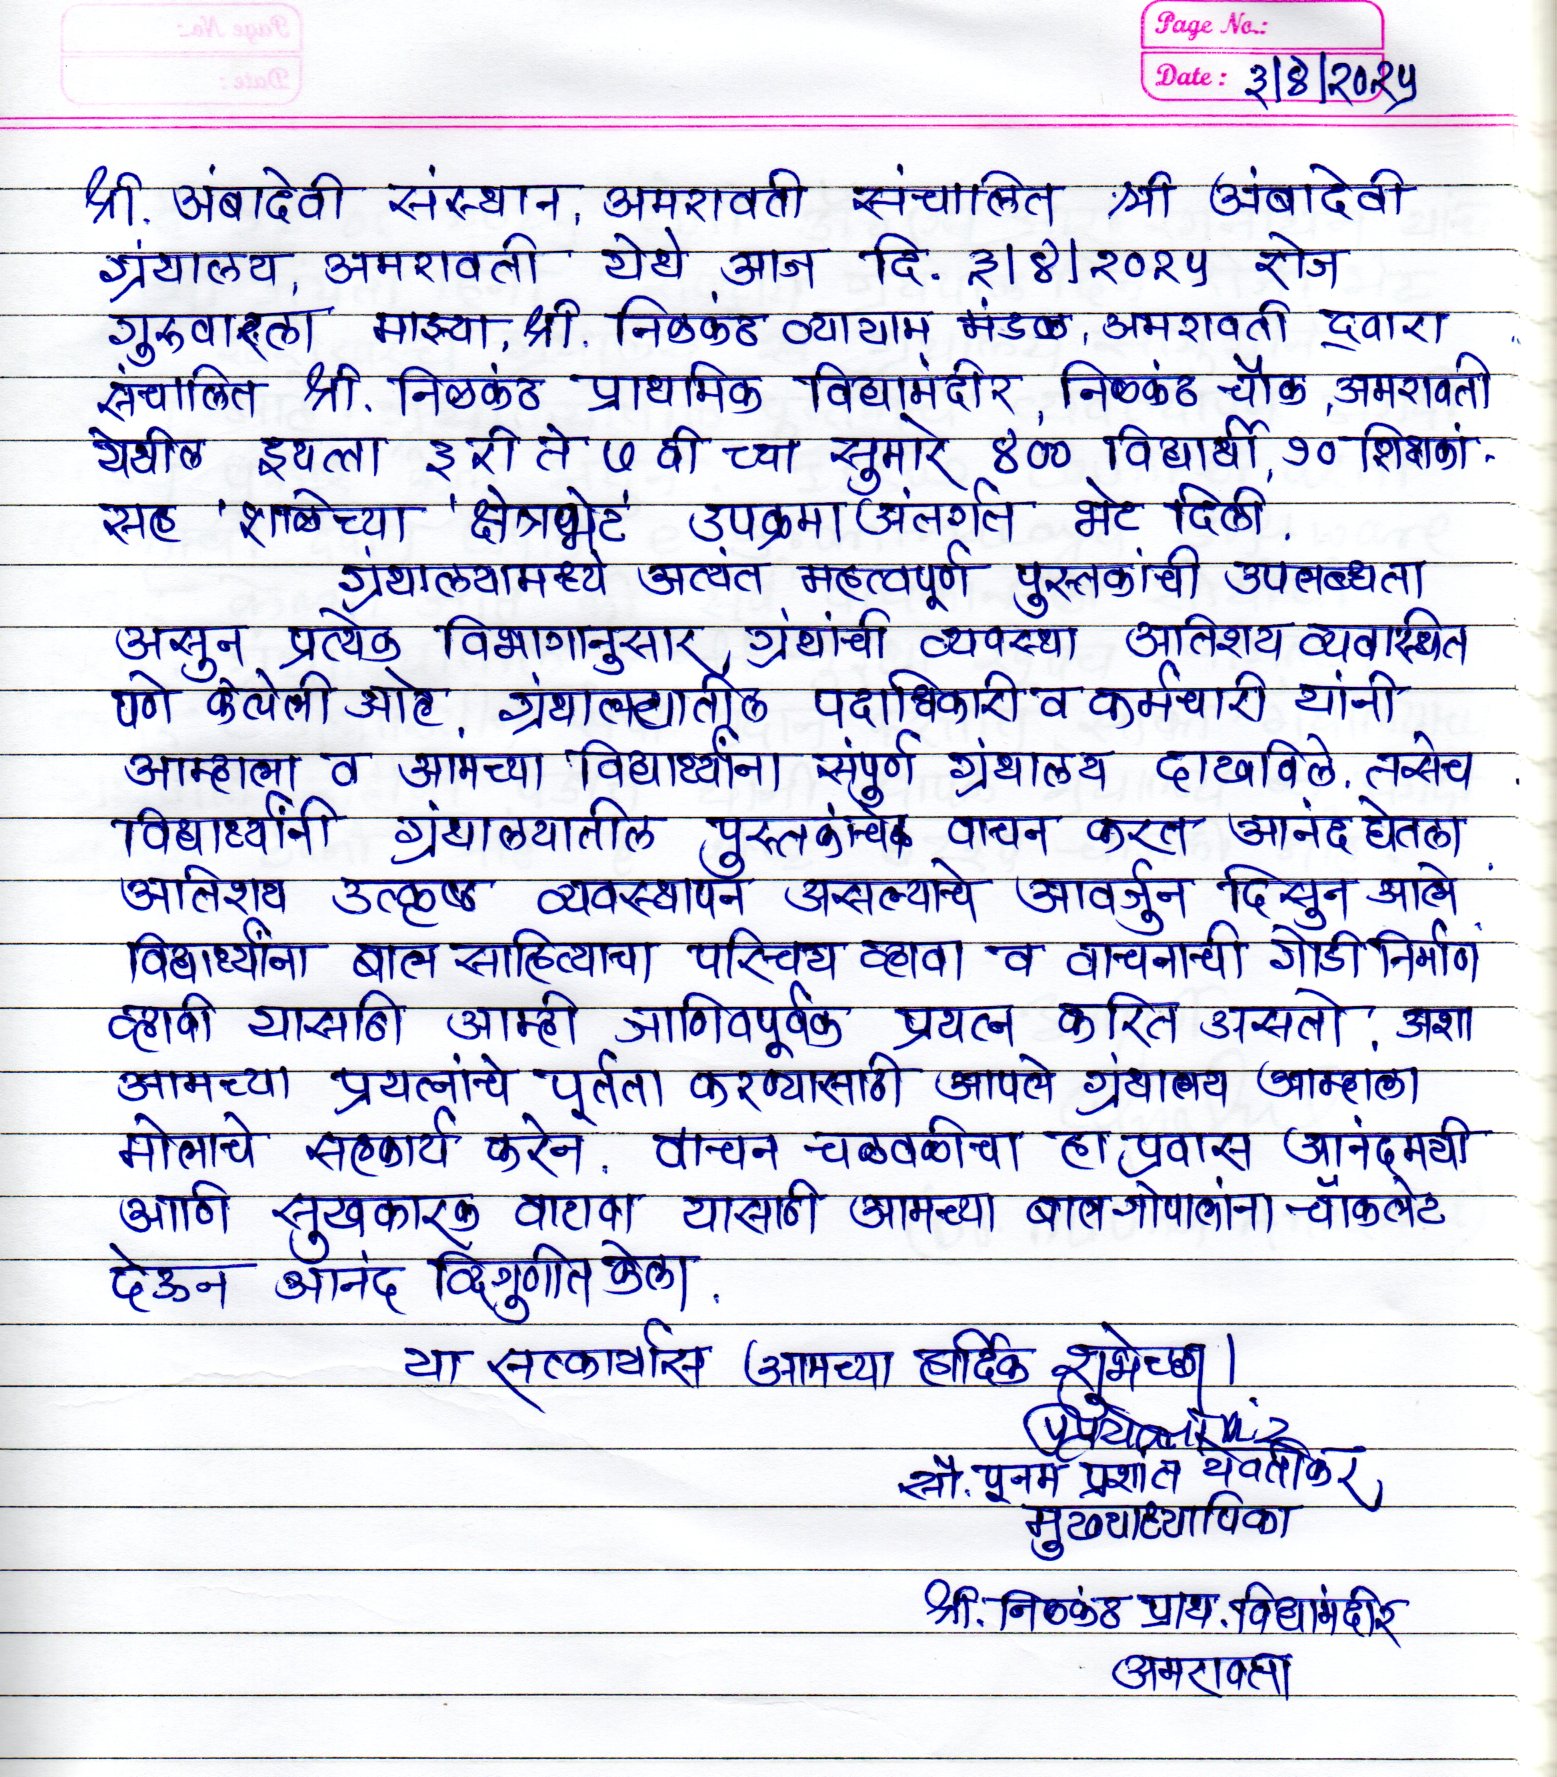 Page No.:
Date : ३/४/२०२५
श्री. अंबादेवी संस्थान, अमरावती संचालित श्री अंबादेवी
ग्रंथालय, अमरावती येथे आज दि. ३/४/२०२५ रोज
गुरुवारला माझ्या, श्री. निळकंठ व्यायाम मंडळ, अमरावती द्वारा
संचालित श्री. निळकंठ प्राथमिक विद्यामंदीर, निळकंठ चौक, अमरावती
येथील इयत्ता ३ री ते ७ वी च्या सुमारे ४०० विद्यार्थी, १० शिक्षकां-
सह 'शाळेच्या 'क्षेत्रभेट' उपक्रमा अंतर्गत भेट दिली.
ग्रंथालयामध्ये अत्यंत महत्वपूर्ण पुस्तकांची उपलब्धता
असुन प्रत्येक विभागानुसार ग्रंथांची व्यवस्था अतिशय व्यवस्थित
पणे केलेली आहे. ग्रंथालयातील पदाधिकारी व कर्मचारी यांनी
आम्हाला व आमच्या विद्यार्थ्यांना संपूर्ण ग्रंथालय दाखविले. तसेच
विद्यार्थ्यांनी ग्रंथालयातील पुस्तकांचे वाचन करत आनंद घेतला.
अतिशय उत्कृष्ठ व्यवस्थापन असल्याचे आवर्जुन दिसुन आले.
विद्यार्थ्यांना बाल साहित्याचा परिचय व्हावा व वाचनाची गोडी निर्माण
व्हावी यासाठी आम्ही जाणिवपूर्वक प्रयत्न करित असतो. अशा
आमच्या प्रयत्नांचे पूर्तता करण्यासाठी आपले ग्रंथालय आम्हाला
मोलाचे सहकार्य करेन. वाचन चळवळीचा हा प्रवास आनंदमयी
आणि सुखकारक वाटावा यासाठी आमच्या बालगोपालांना चॉकलेट
देऊन आनंद व्दिगुणीत केला.
या सत्कार्यास आमच्या हार्दिक शुभेच्छा।
सौ. पूनम प्रशांत येवतीकर
मुख्याध्यापिका
श्री. निळकंठ प्राथ. विद्यामंदीर
अमरावती